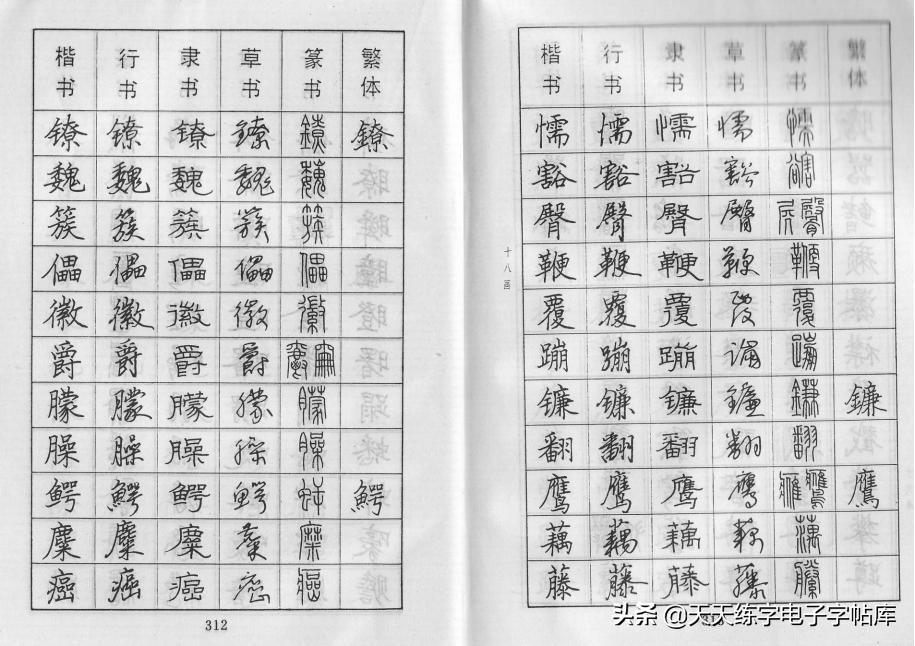 楷书 行书 隶书 草书 篆书 繁体
镣 镣 镣 镣 镣 鐐
魏 魏 魏 魏 魏
簇 簇 簇 簇 簇
儡 儡 儡 儡 儡
徽 徽 徽 徽 徽
爵 爵 爵 爵 爵
朦 朦 朦 朦 朦
臊 臊 臊 臊 臊
鳄 鳄 鳄 鳄 鳄 鰐
糜 糜 糜 糜 糜
癌 癌 癌 癌 癌
312
十八画
楷书 行书 隶书 草书 篆书 繁体
懦 懦 懦 懦 懦
豁 豁 豁 豁 豁
臀 臀 臀 臀 臀
鞭 鞭 鞭 鞭 鞭
覆 覆 覆 覆 覆
蹦 蹦 蹦 蹦 蹦
镰 镰 镰 镰 镰 鐮
翻 翻 翻 翻 翻
鹰 鹰 鹰 鹰 鹰 鷹
藕 藕 藕 藕 藕
藤 藤 藤 藤 藤
头条 @天天练字电子字帖库